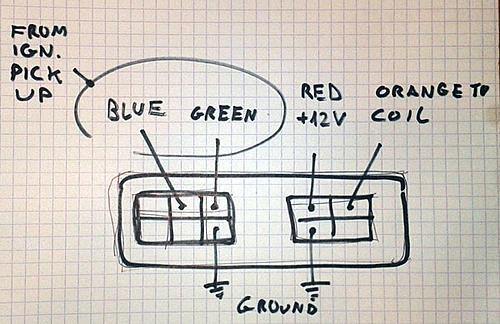 FROM
IGN.
PICK
UP
BLUE
GREEN
RED
+12V
ORANGE TO
COIL
GROUND